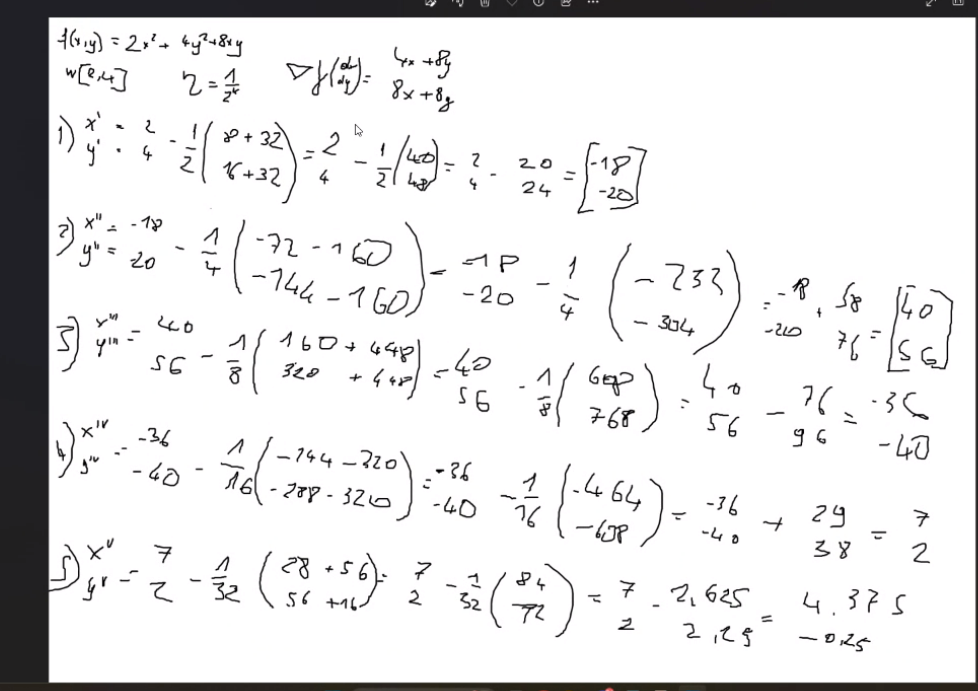 f(x,y) = 2x² + 4y²+8xy
w[2,4] η = 1/2ᵏ ∇f(dx dy) = 4x+8y 8x+8y
1) x' y' = 2 4 - 1/2 (8+32 16+32) = 2 4 - 1/2 (40 48) = 2 4 - 20 24 = [-18 -20]
2) x'' = -18 y'' = 20 - 1/4 (-72 - 160 -144 - 160) = -18 -20 - 1/4 (-232 -304) = -18 -20 + 58 76 = [40 56]
3) x''' y''' = 40 56 - 1/8 (160 + 448 320 + 448) = 40 56 - 1/8 (608 768) = 40 56 - 76 96 = -36 -40
4) xᴵⱽ yᴵⱽ = -36 -40 - 1/16 (-144 - 320 -288 - 320) = -36 -40 - 1/16 (-464 -608) = -36 -40 + 29 38 = 7 2
5) xⱽ yⱽ = 7 2 - 1/32 (28 + 56 56 + 16) = 7 2 - 1/32 (84 72) = 7 2 - 2,625 2,25 = 4.375 -0.25